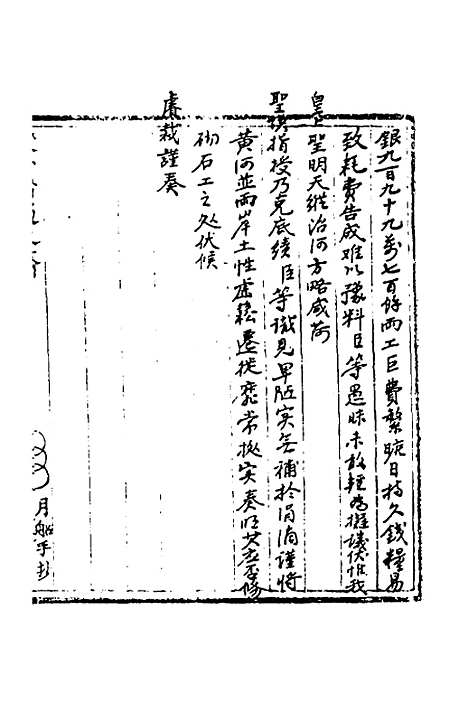 銀九百九十九萬七百餘兩工巨費繁曠日持久錢糧易
致耗費告成难以豫料臣等愚昧未敢輕為擬議伏惟我
皇上聖明天縱治河方略咸荷
聖謨指授乃克底績臣等識見卑陋实無補於涓滴謹將
黃河並兩岸土性虛鬆遷徙靡常據实奏明其应否修
砌石工之处伏候
睿裁謹奏
月船手抄